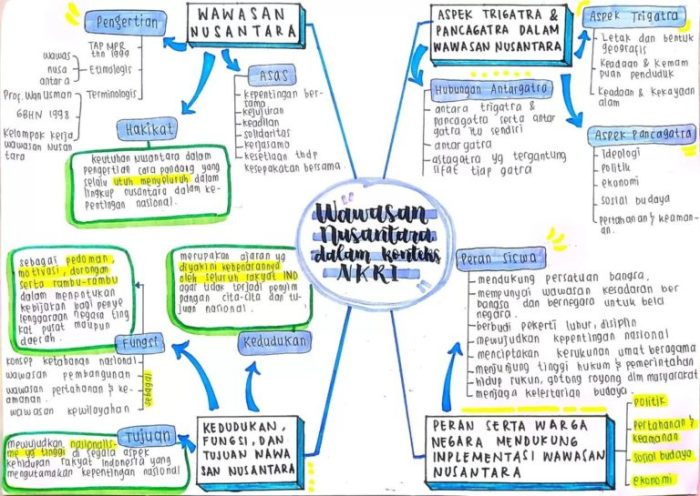 "Wawasan
Nusantara
dalam konteks
NKRI"
WAWASAN
NUSANTARA
Pengertian
TAP MPR
thn 1999
wawas
nusa
antara
Etimologis
Prof. Wan Usman
GBHN 1998
Kelompok kerja
wawasan Nusan
tara
Terminologis
Asas
kepentingan ber-
sama
kejujuran
keadilan
solidaritas
kerjasama
kesetiaan thdp
kesepakatan bersama
Hakikat
keutuhan Nusantara dalam
pengertian cara pandang yang
selalu utuh menyeluruh dalam
lingkup nusantara dalam ke-
pentingan nasional.
ASPEK TRIGATRA &
PANCAGATRA DALAM
WAWASAN NUSANTARA
Aspek Trigatra
Letak dan bentuk
geografis
Keadaan & Kemam
puan penduduk
Keadaan & kekayaan
alam
Hubungan Antargatra
antara trigatra &
pancagatra serta antar
gatra itu sendiri
antar gatra
astagatra yg tergantung
sifat tiap gatra
Aspek Pancagatra
ideologi
politik
ekonomi
sosial budaya
pertahanan & keaman-
an.
KEDUDUKAN,
FUNGSI, DAN
TUJUAN WAWA
SAN NUSANTARA
Kedudukan
merupakan ajaran yg
diyakini kebenarannya
oleh seluruh rakyat IND
agar tidak terjadi penyim
pangan cita-cita dan tu-
juan nasional.
Fungsi
sebagai pedoman,
motivasi, dorongan
serta rambu-rambu
dalam menentukan
kebijakan bagi penye
lenggaraan negara ting
kat pusat maupun
daerah.
konsep ketahanan nasional
wawasan pembangunan
wawasan pertahanan & ke-
amanan.
wawasan kewilayahan
sebagai
Tujuan
mewujudkan nasionalis-
me yg tinggi di segala aspek
kehidupan rakyat Indonesia yang
mengutamakan kepentingan nasional
PERAN SERTA WARGA
NEGARA MENDUKUNG
INPLEMENTASI WAWASAN
NUSANTARA
Peran Siswa
mendukung persatuan bangsa,
mempunyai wawasan kesadaran ber
bangsa dan bernegara untuk bela
negara.
berbudi pekerti luhur, disiplin
mewujudkan kepentingan nasional
menciptakan kerukunan umat beragama
menjunjung tinggi hukum & pemerintahan
hidup rukun, gotong royong dlm masyarakat
menjaga kelestarian budaya.
politik
pertahanan &
keamanan
sosial budaya
ekonomi